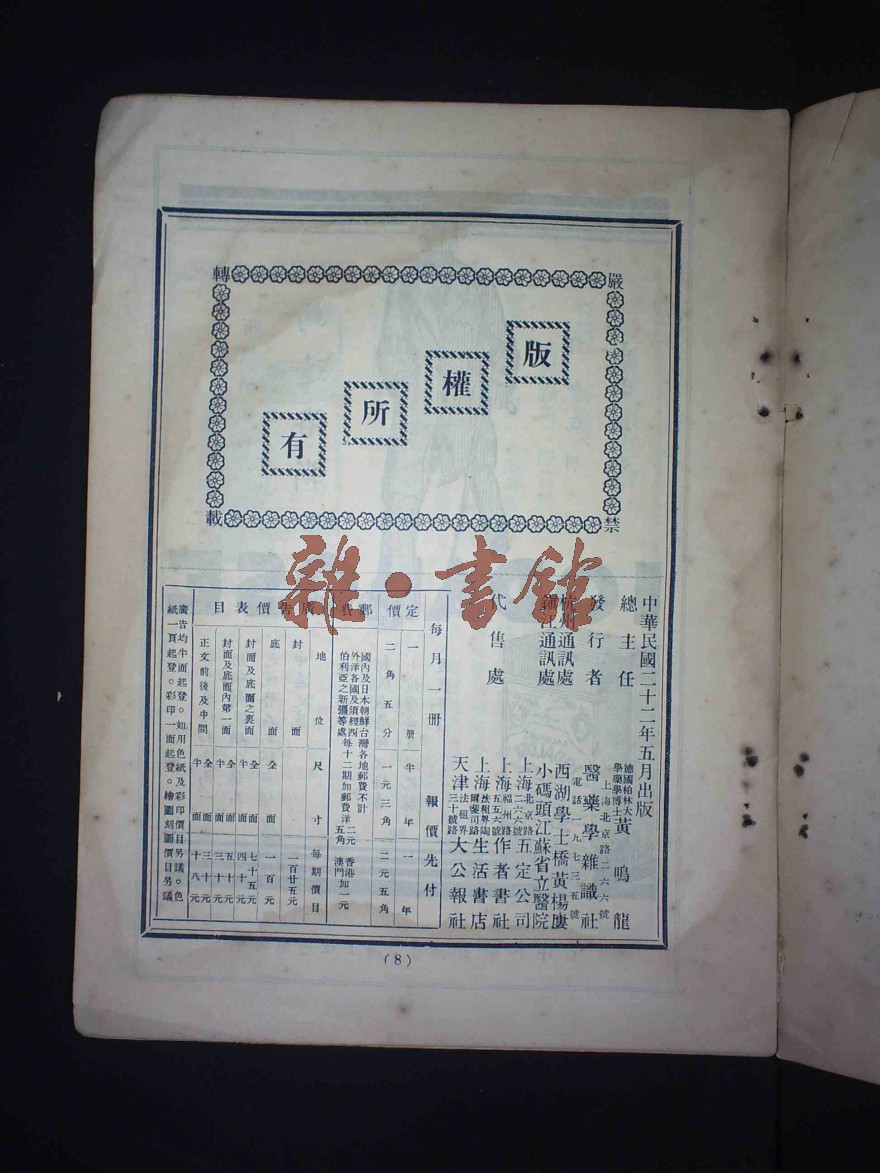 嚴禁轉載
版權所有
中華民國二十二年五月出版
總主任 德國柏林大學藥學博士 黃鳴龍
發行者 上海北京路二六六號 醫藥學雜識社 電話一九七三五號
杭州通訊處 西湖學士橋黃楊廔
鎮江通訊處 小碼頭江蘇省立醫院
代售處 上海北京路二六八號 五定公司
上海福州路五五六號 作者書社
上海法租界陶爾斐司路 生活書店
天津法租界三十號路 大公報社
每月一冊 報價先付
定價 一冊 半年 一年
二角五分 一元三角 二元五角
郵費 國內及日本朝鮮台灣各地郵費不計
外洋各國及須經西伯利亞之新彊等處每十二期加郵費洋二元五角 香港澳門加一元
廣告價表目
地位 尺寸 每期價目
封面 一百廿五元
底面 全面 一百元
封面及底面之裏面 全面 七十五元
半面 四十元
封面及底面內第一面 全面 五十元
半面 三十元
正文前後及中間 全面 三十元
半面 十八元
廣告均半面起登。如用色紙及彩印價目另議。色紙一頁起登。彩印一面起登。繪圖刻圖價目另議
(8)
雜·書館